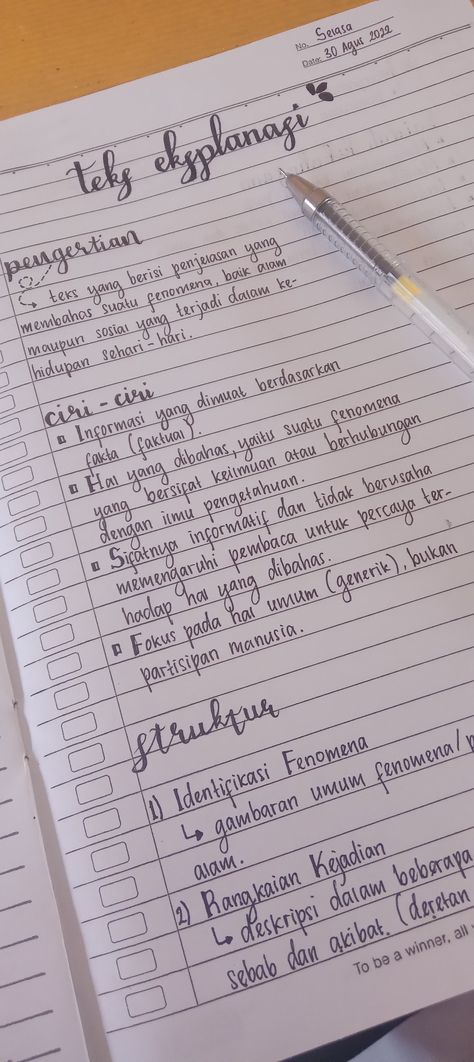 No. Selasa
Date: 30 Agus 2022
teks eksplanasi
pengertian
↳ teks yang berisi penjelasan yang
membahas suatu fenomena, baik alam
maupun sosial yang terjadi dalam ke-
hidupan sehari-hari.
ciri-ciri
▫ Informasi yang dimuat berdasarkan
fakta (faktual).
▫ Hal yang dibahas, yaitu suatu fenomena
yang bersifat keilmuan atau berhubungan
dengan ilmu pengetahuan.
▫ Sifatnya informatif dan tidak berusaha
memengaruhi pembaca untuk percaya ter-
hadap hal yang dibahas.
▫ Fokus pada hal umum (generik), bukan
partisipan manusia.
struktur
1) Identifikasi Fenomena
↳ gambaran umum fenomena/
alam.
2) Rangkaian Kejadian
↳ deskripsi dalam beberapa
sebab dan akibat. (deretan
To be a winner, all